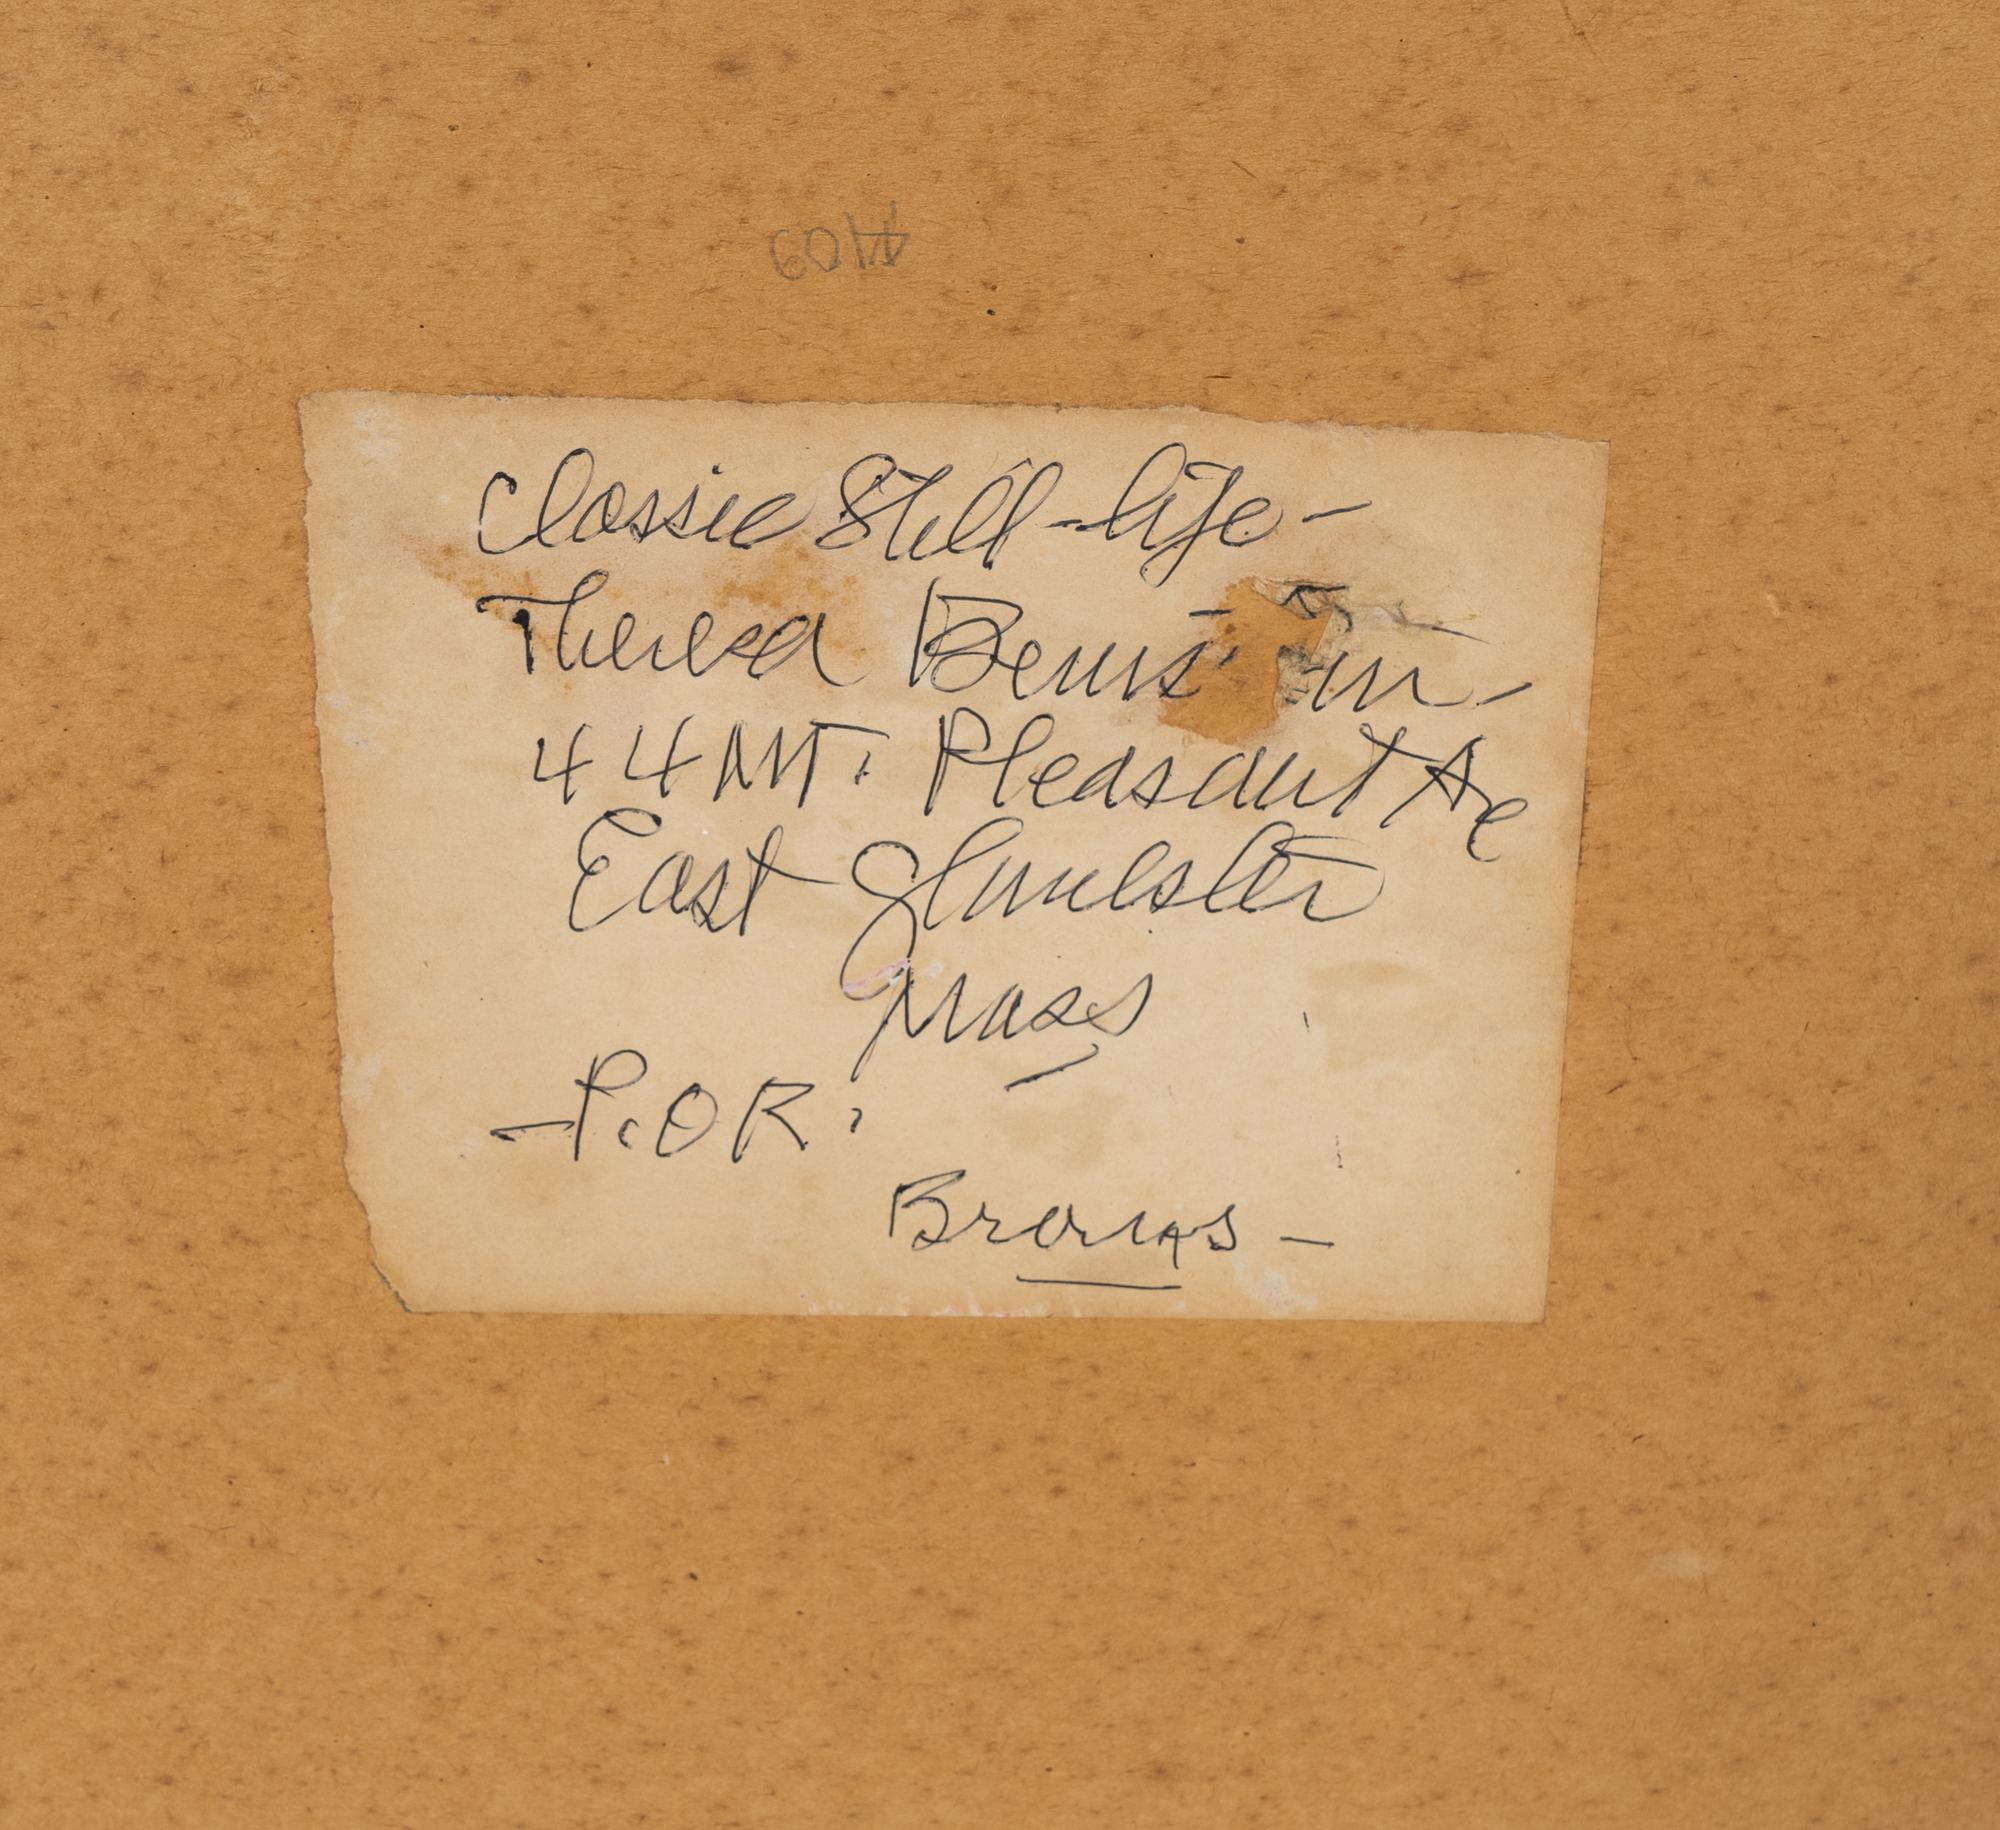 4109
Classic Still-life -
Theresa Berns in -
44 MT. Pleasant Ave
East Gloucester
Mass
- P.OR.